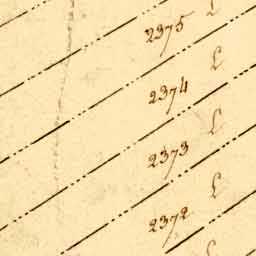 L
2375
L
2374
L
2373
L
2372
L